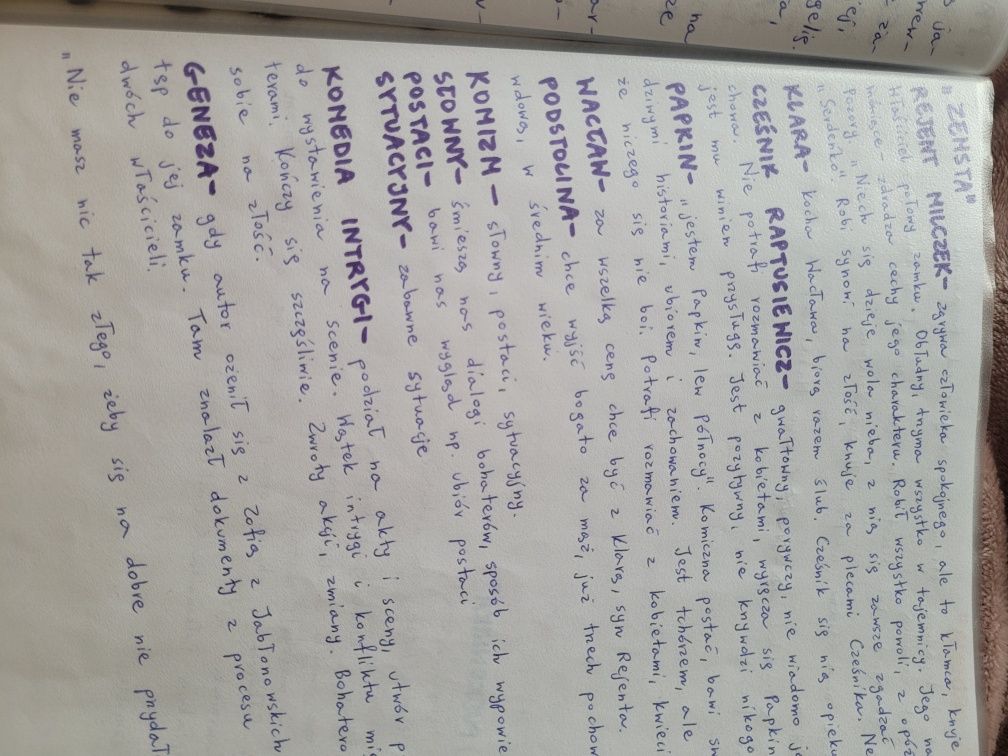 "ZEMSTA"
REJENT MILCZEK- zgrywa człowieka spokojnego, ale to kłamca, knuje
Właściciel połowy zamku. Obłudny, trzyma wszystko w tajemnicy. Jego
zdradza cechy jego charakteru. Robił wszystko powoli, z
pozory "Niech się dzieje wola nieba, z nią się zawsze zgadzać
Robi synowi na złość, knuje za plecami Cześnika.
KLARA- kocha Wacława, biorą razem ślub. Cześnik się nią
CZEŚNIK RAPTUSIEWICZ- gwałtowny, porywczy, nie wiadomo
chowa. Nie potrafi rozmawiać z kobietami, wyręcza się
jest mu winien przysługę. Jest pozytywny, nie krzywdzi nikogo
PAPKIN- "jestem Papkin, lew północy". Komiczna postać, bawi
dziwnymi historiami, ubiorem i zachowaniem. Jest tchórzem, ale
że niczego się nie boi. Potrafi rozmawiać z kobietami,
WACŁAW- za wszelką cenę chce być z Klarą, syn Rejenta.
PODSTOLINA- chce wyjść bogato za mąż, już trzech
wdowa, w średnim wieku.
KOMIZM - słowny, postaci, sytuacyjny.
SŁOWNY- śmieszą nas dialogi bohaterów, sposób ich
POSTACI- bawi nas wygląd np. ubiór postaci
SYTUACYJNY- zabawne sytuacje
KOMEDIA INTRYGI- podział na akty i sceny, utwór
do wystawienia na scenie. Wątek intrygi i konfliktu
terami. Kończy się szczęśliwie. Zwroty akcji, zmiany.
sobie na złość.
GENEZA- gdy autor ożenił się z Zofią z Jabłonowskich
tsp do jej zamku. Tam znalazł dokumenty z procesu
dwóch właścicieli.
"Nie masz nic tak złego, żeby się na dobre nie